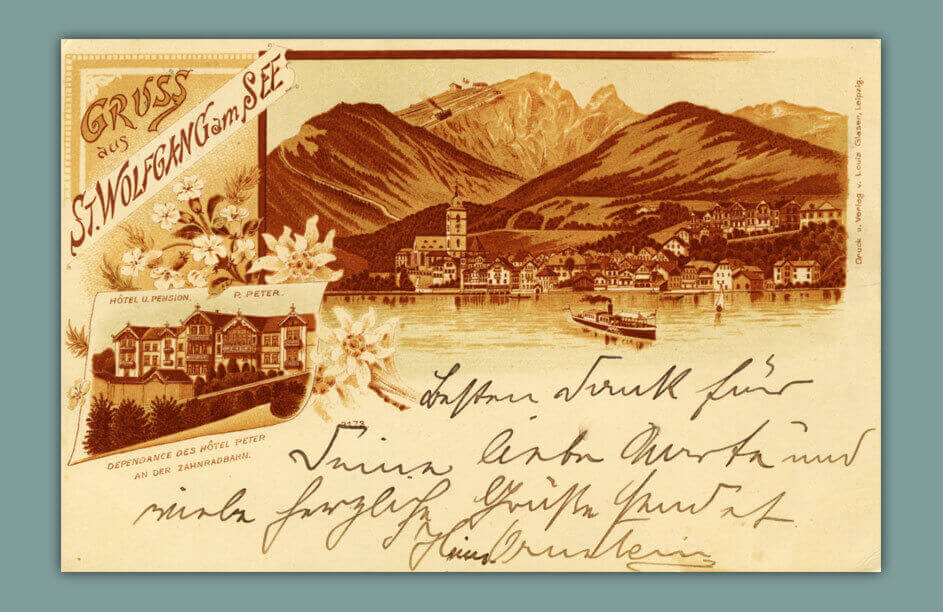 GRUSS
aus
ST. WOLFGANG am SEE
HÔTEL U. PENSION. P. PETER.
DEPENDANCE DES HÔTEL PETER
AN DER ZAHNRADBAHN.
Druck u. Verlag v. Louis Glaser, Leipzig.
Besten Dank für
Deine liebe Karte und
viele herzliche Grüße sendet